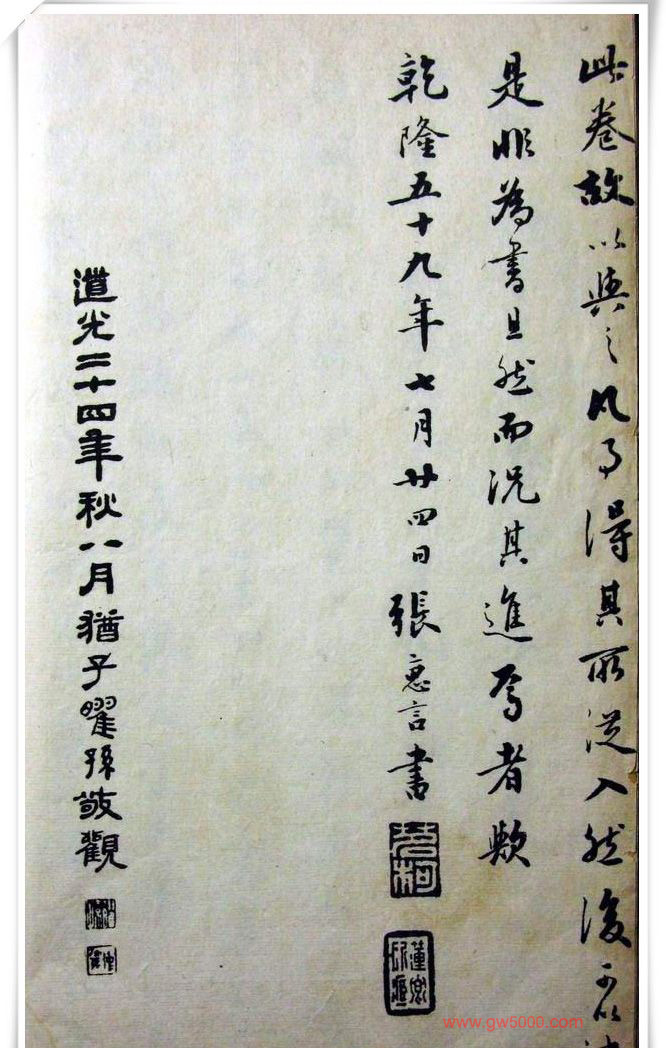 此卷故以與之凡事得其所從入然後可以
是非為書且然而況其進焉者歟
乾隆五十九年七月廿四日張惠言書
道光二十四年秋八月猶子曜孫敬觀
www.gw5000.com